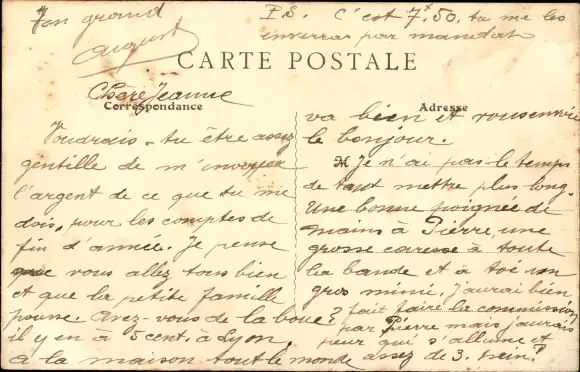 Ton grand
August
P.S. C'est 7f50, tu me les
enverras par mandat
CARTE POSTALE
Chère Jeanne
Correspondance
Adresse
Voudrais-tu être assez
gentille de m'envoyer
l'argent de ce que tu me
dois, pour les comptes de
fin d'année. Je pense
que vous allez tous bien
et que la petite famille
pousse. Avez-vous de la boue?
il y en à 5 cent. à Lyon.
à la maison tout le monde
va bien et vous envoie
le bonjour.
Je n'ai pas le temps
de tout mettre plus long.
Une bonne poignée de
mains à Pierre, une
grosse caresse à toute
la bande et à toi un
gros mimi. J'aurai bien
fait faire la commission
par Pierre mais j'aurais
peur qui s'allume et
assez de 3. hein?